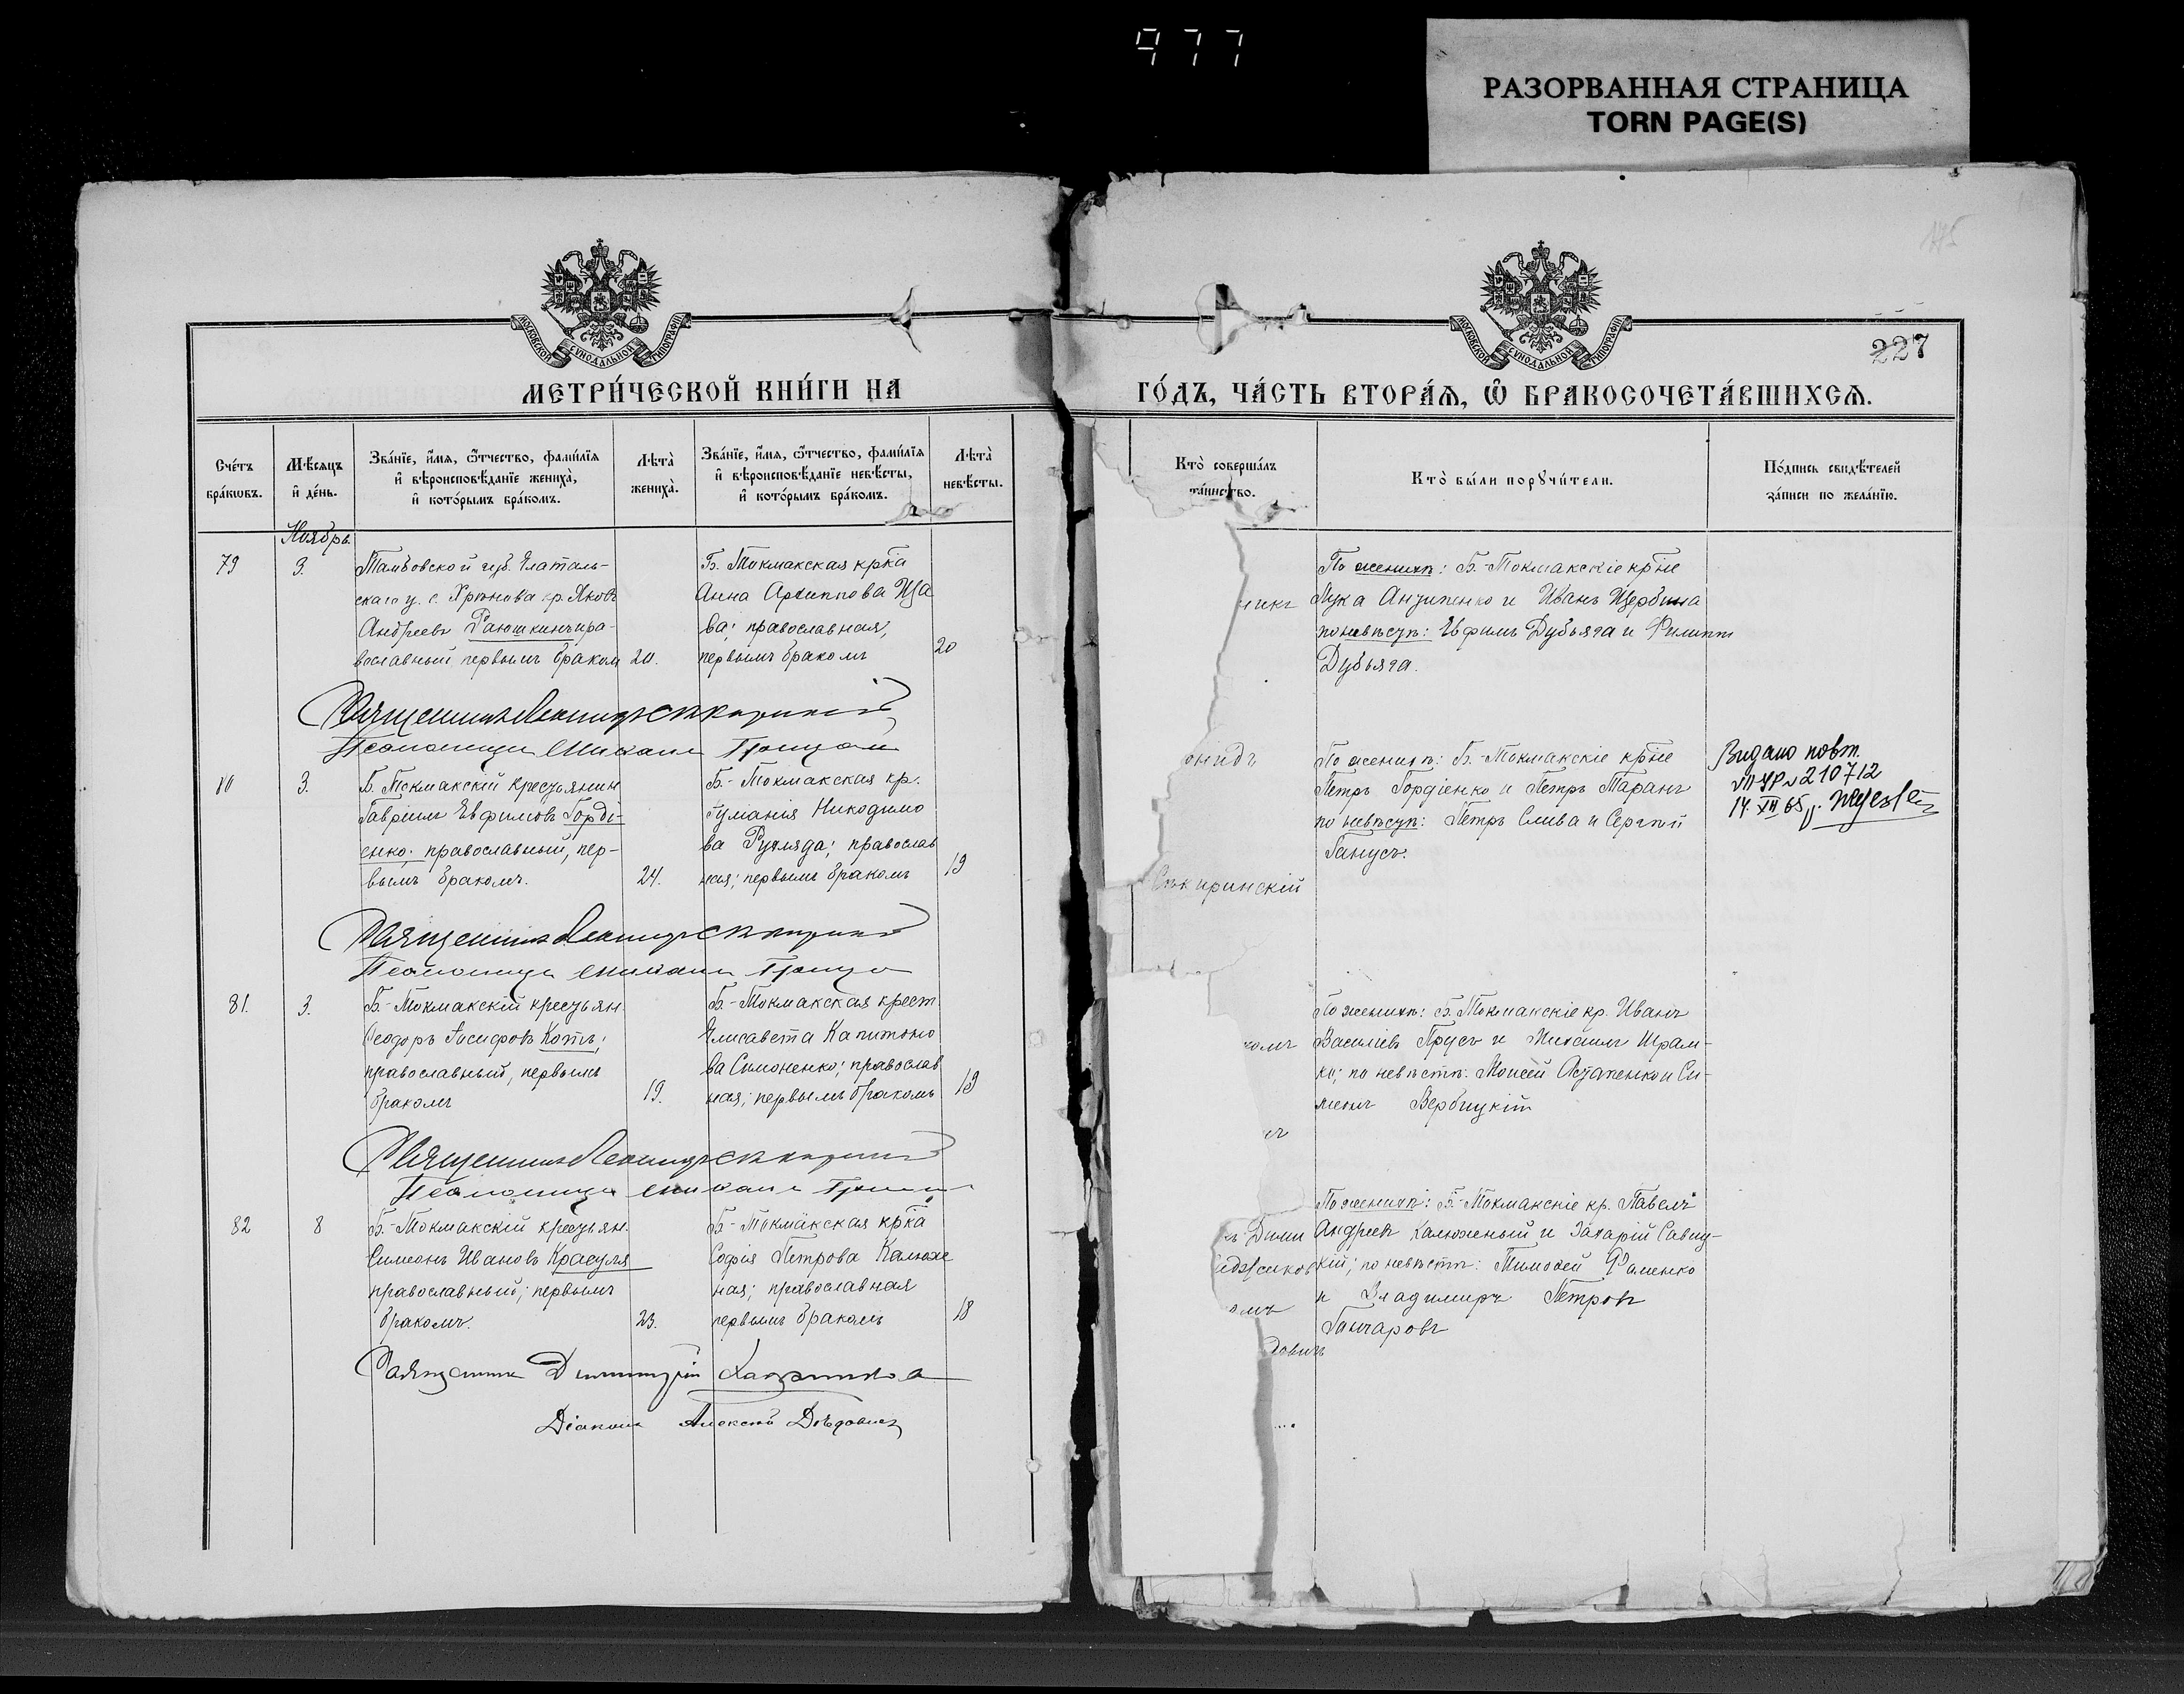 977
РАЗОРВАННАЯ СТРАНИЦА
TORN PAGE(S)
МОСКОВСКОЙ СѴНОДАЛЬНОЙ ТИПОГРАФІИ
МЕТРИ́ЧЕСКОЙ КНИ́ГИ НА
Сче́тъ бра́кѡвъ.
Мѣ́сѧцъ и҆ де́нь.
Зва́нїе, и҆́мѧ, ѻ҆́тчество, фами́лїѧ и҆ вѣроисповѣ́данїе жениха̀, и҆ кото́рымъ бра́комъ.
Лѣта̀ жениха̀.
Зва́нїе, и҆́мѧ, ѻ҆́тчество, фами́лїѧ и҆ вѣроисповѣ́данїе невѣ́сты, и҆ кото́рымъ бра́комъ.
Лѣта̀ невѣ́сты.
Ноябрь
79
3.
Тамбовской губ. Елатомь-
скаго у. с. кр. Яковъ
Андреевъ Раюшкинъ пра-
вославный первымъ бракомъ
20.
Б. Токмакская крка
Анна Архиппова
ва; православная,
первымъ бракомъ
20
Священникъ Леонидъ Сѣкиринскій
Псаломщикъ
80
3.
Б. Токмакскій крестьянинъ
Гавріилъ Евфимовъ Горді-
енко. православный, пер-
вымъ бракомъ.
24.
Б.-Токмакская кр.
Никодимо
ва православ
ная; первымъ бракомъ
19
Священникъ Леонидъ Сѣкиринскій
Псаломщикъ
81.
3.
Б.-Токмакскій крестьян.
Ѳеодоръ Іосифовъ Котъ;
православный, первымъ
бракомъ
19.
Б.-Токмакская крест.
Елисавета Капитоно
ва Симоненко; православ
ная; первымъ бракомъ
19
Священникъ Леонидъ Сѣкиринскій
Псаломщикъ
82
8
Б.-Токмакскій крестьян.
Симеонъ Ивановъ Красуля
православный; первымъ
бракомъ.
23.
Б-Токмакская крка
Софія Петрова Калюж
ная; православная
первымъ бракомъ
18
Священникъ Димитрій
Діаконъ Алексѣй Дѣдовичъ
МОСКОВСКОЙ СѴНОДАЛЬНОЙ ТИПОГРАФІИ
227
ГО́ДЪ, ЧА́СТЬ ВТОРА́Ѧ, Ѡ҆ БРАКОСОЧЕТА́ВШИХСѦ.
Кто̀ соверша́лъ та́инство.
Кто̀ бы́ли порꙋчи́тели.
По́дпись свидѣ́телей за́писи по жела́нїю.
никъ
По женихѣ: Б.-Токмакскіе крне
Лука Анципенко и Иванъ Щербина
по невѣстѣ: Евфимъ Дубъяга и Филиппъ
Дубъяга.
онидъ
Сѣкиринскій
По женихѣ: Б.-Токмакскіе крне
Петръ Гордіенко и Петръ Таранъ
по невѣстѣ: Петръ Слива и Сергѣй
Ганусъ.
Видано повт.
210712
14. XII 65
комъ
По женихѣ: Б. Токмакскіе кр. Иванъ
Василіевъ Прусъ и Михаилъ Шрам-
ко; по невѣстѣ: Моисей Остапенко и Си-
меонъ Вербицкій
Дими
омъ
довичъ
По женихѣ: Б.-Токмакскіе кр. Павелъ
Андреевъ Калюжный и Захарій Савиц-
кій; по невѣстѣ: Тимоѳей Фоменко
и Владимиръ Петровъ
Гончаровъ